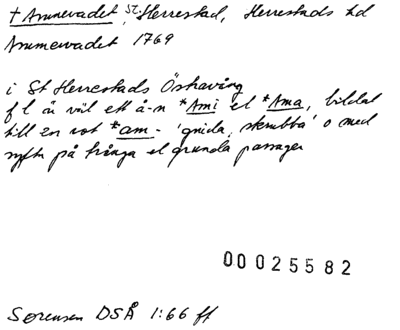 † Ammevadet, St Herrestad, Herrestads hd
Ammevadet 1769
i St Herrestads Öshaväng
f l är väl ett å-n *Ami el *Ama, bildat
till en rot *am- 'gnida, skrubba' o med
syftn på trånga el grunda passager
00025582
Sørensen DSÅ 1:66 ff